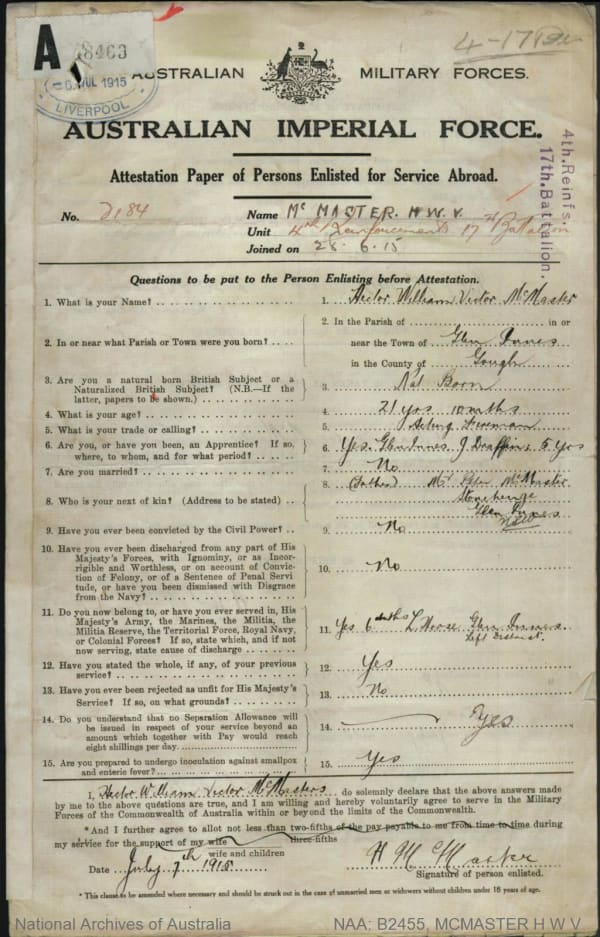 A
8463
JUL 1915
LIVERPOOL
4-17
AUSTRALIAN MILITARY FORCES.
AUSTRALIAN IMPERIAL FORCE.
Attestation Paper of Persons Enlisted for Service Abroad.
4th. Reinfs.
17th. Battalion.
No. 2184
Name Mc MASTER. H W. V.
Unit 4th Reinforcements 17th Battalion
Joined on 28. 6. 15
Questions to be put to the Person Enlisting before Attestation.
1. What is your Name? 1. Hector William Victor McMaster
2. In or near what Parish or Town were you born? 2. In the Parish of in or
near the Town of Glen Innes
in the County of Gough
3. Are you a natural born British Subject or a
Naturalized British Subject? (N.B.—If the
latter, papers to be shown.) 3. Nat Born
4. What is your age? 4. 21 yrs 10 mths
5. What is your trade or calling? 5. Acting Fireman
6. Are you, or have you been, an Apprentice? If so,
where, to whom, and for what period? 6. Yes. Glen Innes. J 5 yrs
7. Are you married? 7. No
8. Who is your next of kin? (Address to be stated) 8. (Father) Mr McMaster
Stonehenge
Glen Innes
NSW
9. Have you ever been convicted by the Civil Power? 9. No
10. Have you ever been discharged from any part of His
Majesty's Forces, with Ignominy, or as Incor-
rigible and Worthless, or on account of Convic-
tion of Felony, or of a Sentence of Penal Servi-
tude, or have you been dismissed with Disgrace
from the Navy? 10. No
11. Do you now belong to, or have you ever served in, His
Majesty's Army, the Marines, the Militia, the
Militia Reserve, the Territorial Force, Royal Navy,
or Colonial Forces? If so, state which, and if not
now serving, state cause of discharge 11. Yes 6 mths L. Horse Glen Innes.
Left District.
12. Have you stated the whole, if any, of your previous
service? 12. Yes
13. Have you ever been rejected as unfit for His Majesty's
Service? If so, on what grounds? 13. No
14. Do you understand that no Separation Allowance will
be issued in respect of your service beyond an
amount which together with Pay would reach
eight shillings per day 14. Yes
15. Are you prepared to undergo inoculation against smallpox
and enteric fever? 15. Yes
I, Hector William Victor McMasters do solemnly declare that the above answers made
by me to the above questions are true, and I am willing and hereby voluntarily agree to serve in the Military
Forces of the Commonwealth of Australia within or beyond the limits of the Commonwealth.
*And I further agree to allot not less than two-fifths of the pay payable to me from time to time during
three-fifths
my service for the support of my wife
wife and children
Date July 7th 1915
H McMaster
Signature of person enlisted.
*This clause to be amended where necessary and should be struck out in the case of unmarried men or widowers without children under 16 years of age.
National Archives of Australia NAA: B2455, MCMASTER H W V